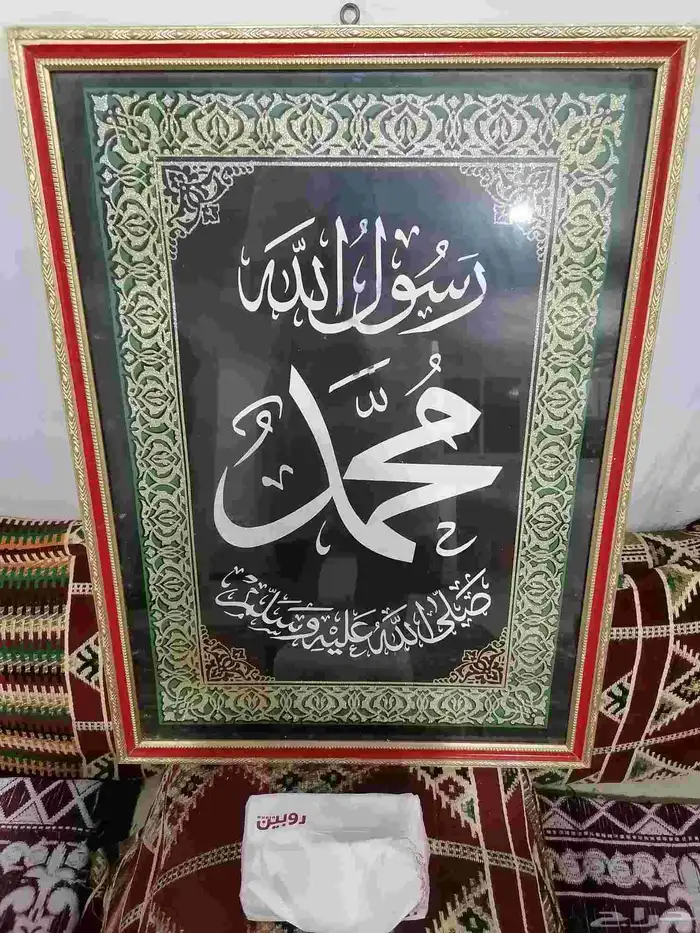 رَسُولُ اللَّه
مُحَمَّدٌ
صَلَّى اللَّهُ عَلَيْهِ وَسَلَّمَ
روبين
حراج